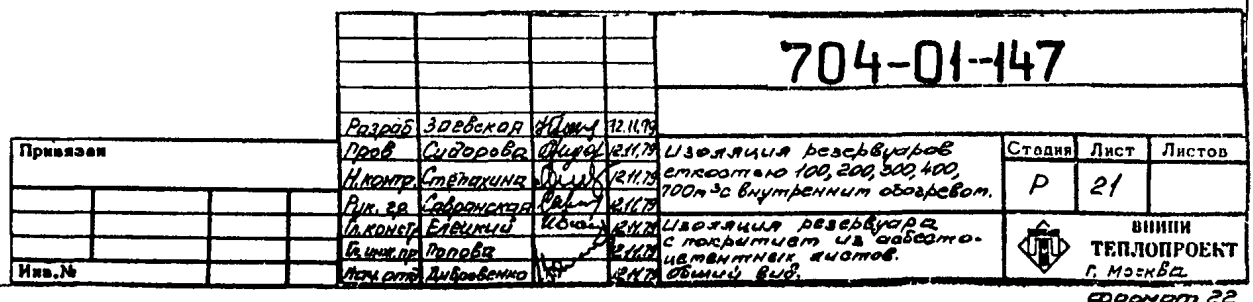 704-01-147
Разраб Заевская 12.11.79
Привязан
Пров Сидорова 12.11.79
Н.контр. Степахина 12.11.79
Рук. гр. Савранская 12.11.79
Гл.констр Елецкий 12.11.79
Гл.инж.пр Попова 12.11.79
Нач. отд Дибровенко 12.11.79
Инв.№
Изоляция резервуаров
емкостью 100, 200, 300, 400,
700м³ с внутренним обогревом.
Изоляция резервуара
с покрытием из асбесто-
цементных листов.
Общий вид.
Стадия Лист Листов
Р 21
ВНИПИ
ТЕПЛОПРОЕКТ
г. Москва
формат 22